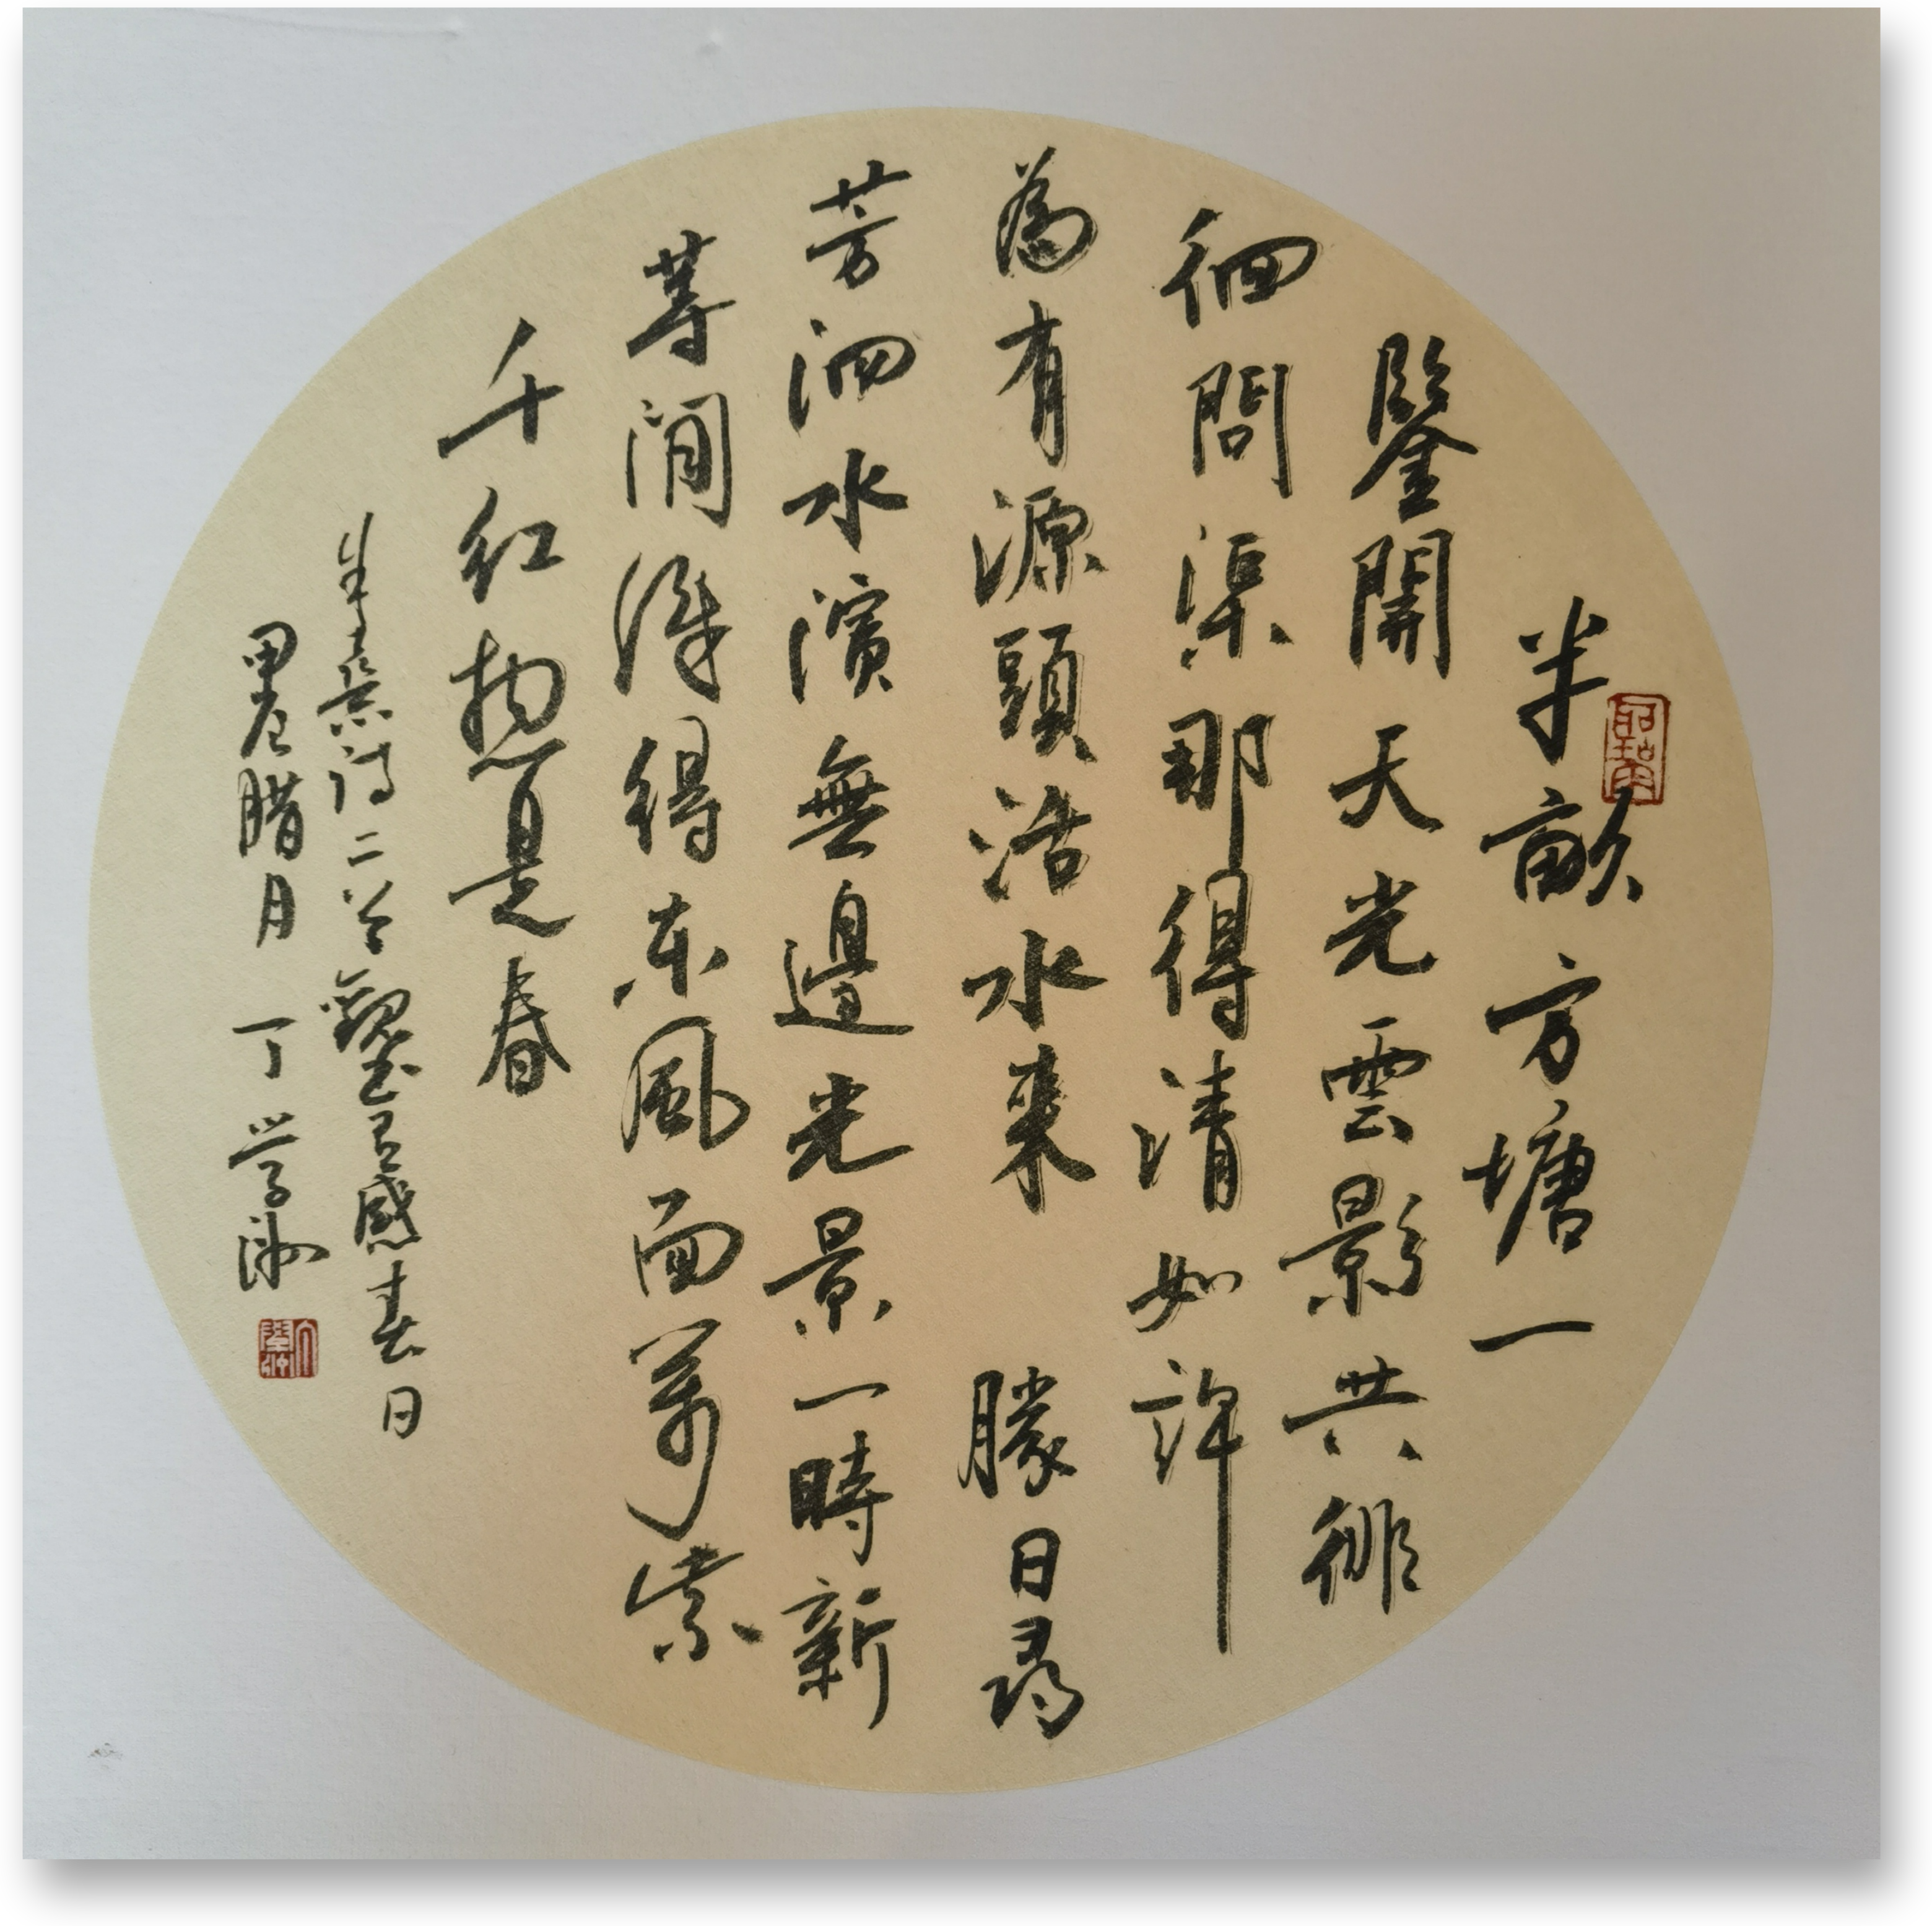 半畝方塘一
鑒開天光雲影共徘
徊問渠那得清如許
為有源頭活水来 勝日尋
芳泗水濱無邊光景一時新
等閒識得东風面萬紫
千红揔是春
朱熹詩二首觀书有感春日
甲辰腊月 丁学